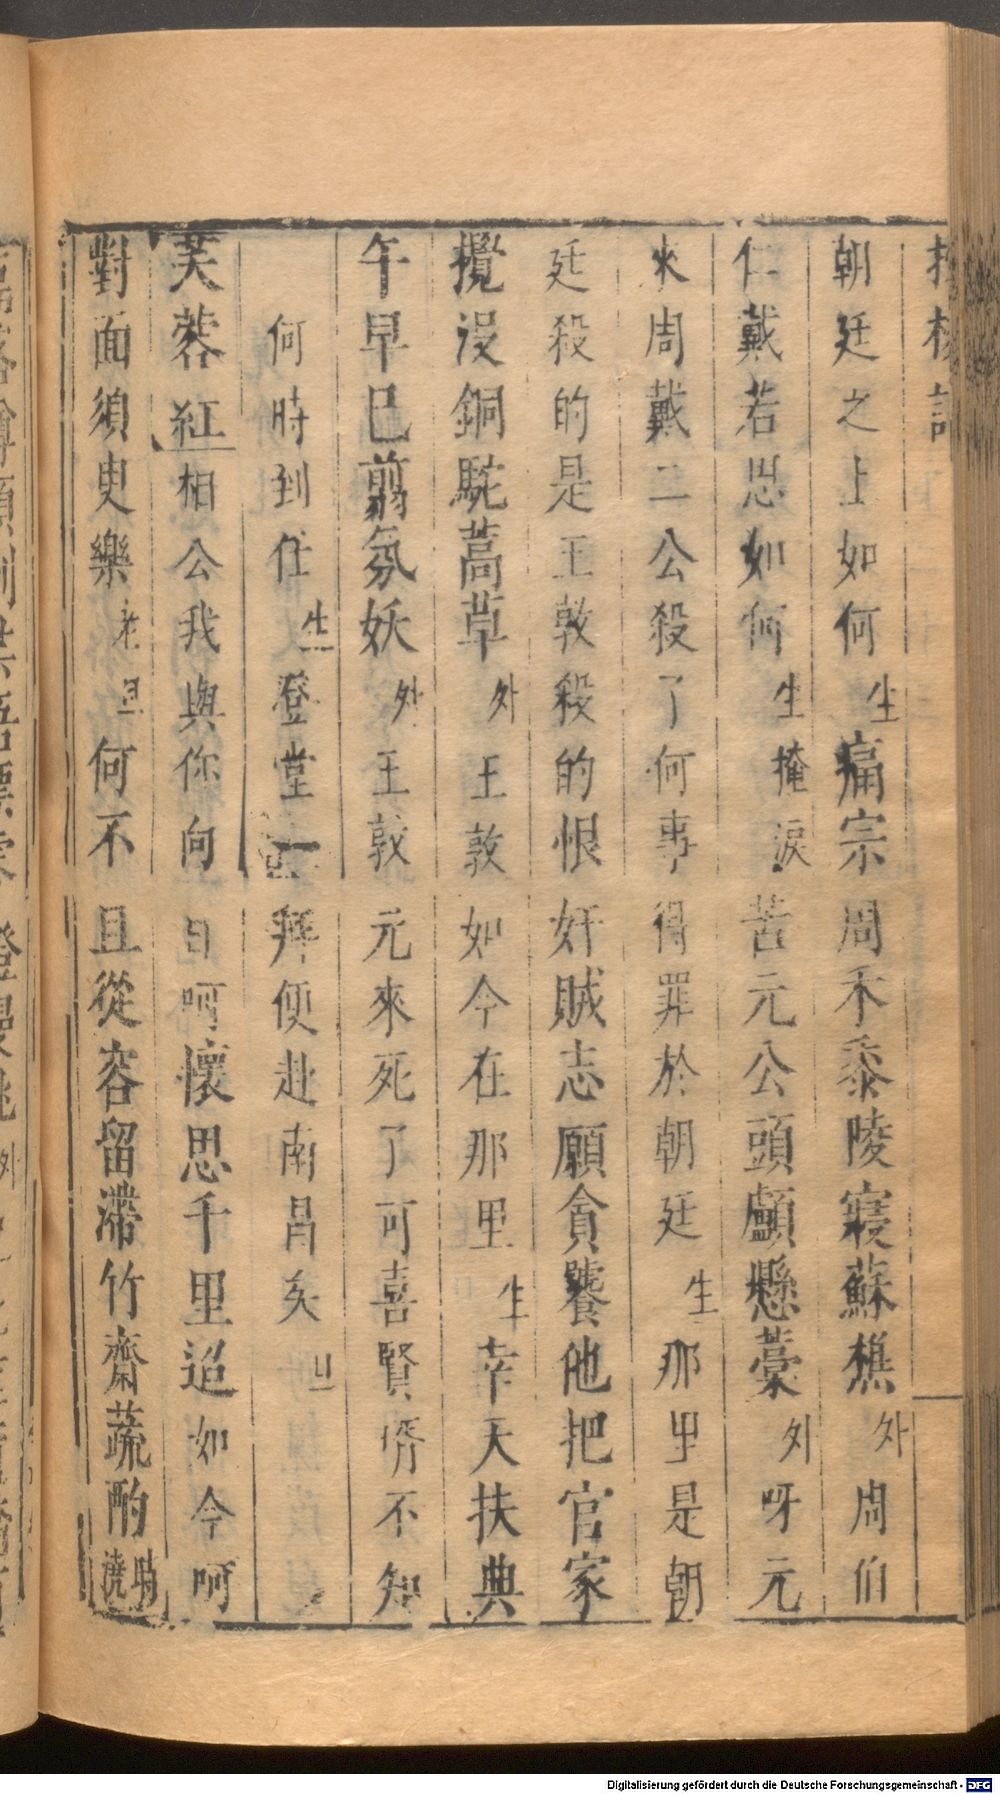 朝廷之上如何生痛宗周禾黍陵寢蘇樵外周伯
仁戴若思如何生掩淚苦元公頭顱懸藁外呀元
來周戴二公殺了何事得罪於朝廷生那里是朝
廷殺的是王敦殺的恨奸賊志願貪饕他把官家
攪沒銅駝蒿草外王敦如今在那里生幸天扶典
午早已剪氛妖外王敦元來死了可喜賢壻不知
何時到任生登堂一拜便赴南昌矣旦
芙蓉紅相公我與你向日呵懷思千里迢如今呵
對面須臾樂老旦何不且從容留滯竹齋蔬酌
Digitalisierung gefördert durch die Deutsche Forschungsgemeinschaft - DFG